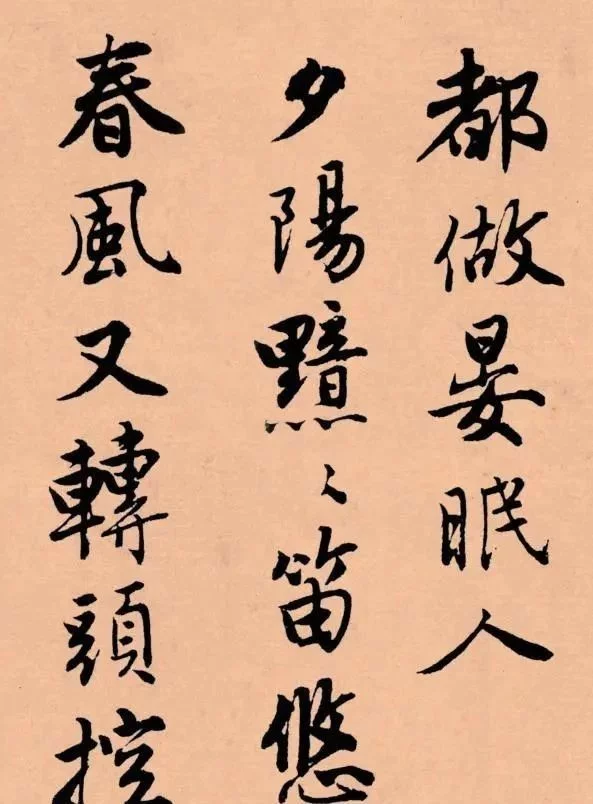 都做晏眠人
夕陽黯〻笛悠
春風又轉頭控